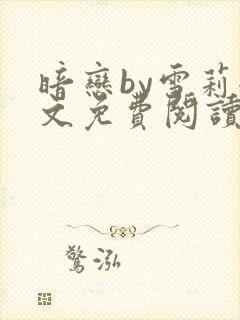 暗戀by雪莉
文免費閱讀
驚泓